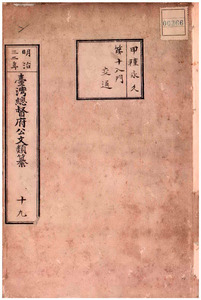 甲種永久
第十八門
交通
明治
三二年
臺灣總督府公文類纂
十九